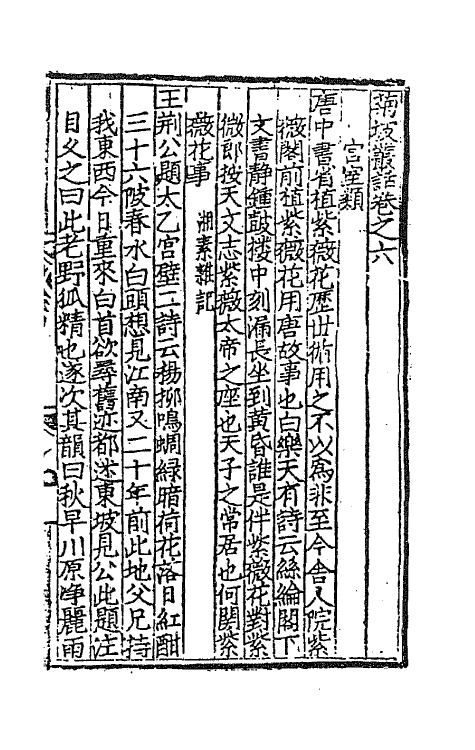 蒲坡叢話卷之六
宮室類
唐中書省植紫薇花歷世循用之不以為非至今舍人院紫
薇閣前植紫薇花用唐故事也白樂天有詩云絲綸閣下
文書静鍾皷樓中刻漏長坐到黄昏誰是伴紫薇花對紫
微郎按天文志紫薇太帝之座也天子之常居也何関紫
薇花事 湘素雜記
王荆公題太乙宮壁二詩云楊柳鳴蜩緑暗荷花落日紅酣
三十六陂春水白頭想見江南又二十年前此地父兄持
我東西今日重來白首欲尋舊迹都迷東坡見公此題注
目久之曰此老野狐精也遂次其韻曰秋早川原净麗雨